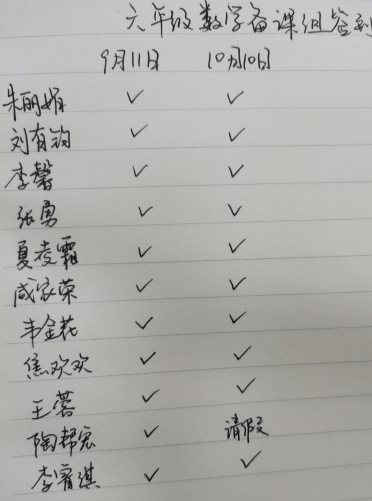 六年级数学备课组签到
9月11日 10月10日
朱丽娟 ✓ ✓
刘有钧 ✓ ✓
李馨 ✓ ✓
张勇 ✓ ✓
夏凌霜 ✓ ✓
咸家荣 ✓ ✓
韦金花 ✓ ✓
焦欢欢 ✓ ✓
王蓉 ✓ ✓
陶帮宏 ✓ 请假
李宥淇 ✓ ✓